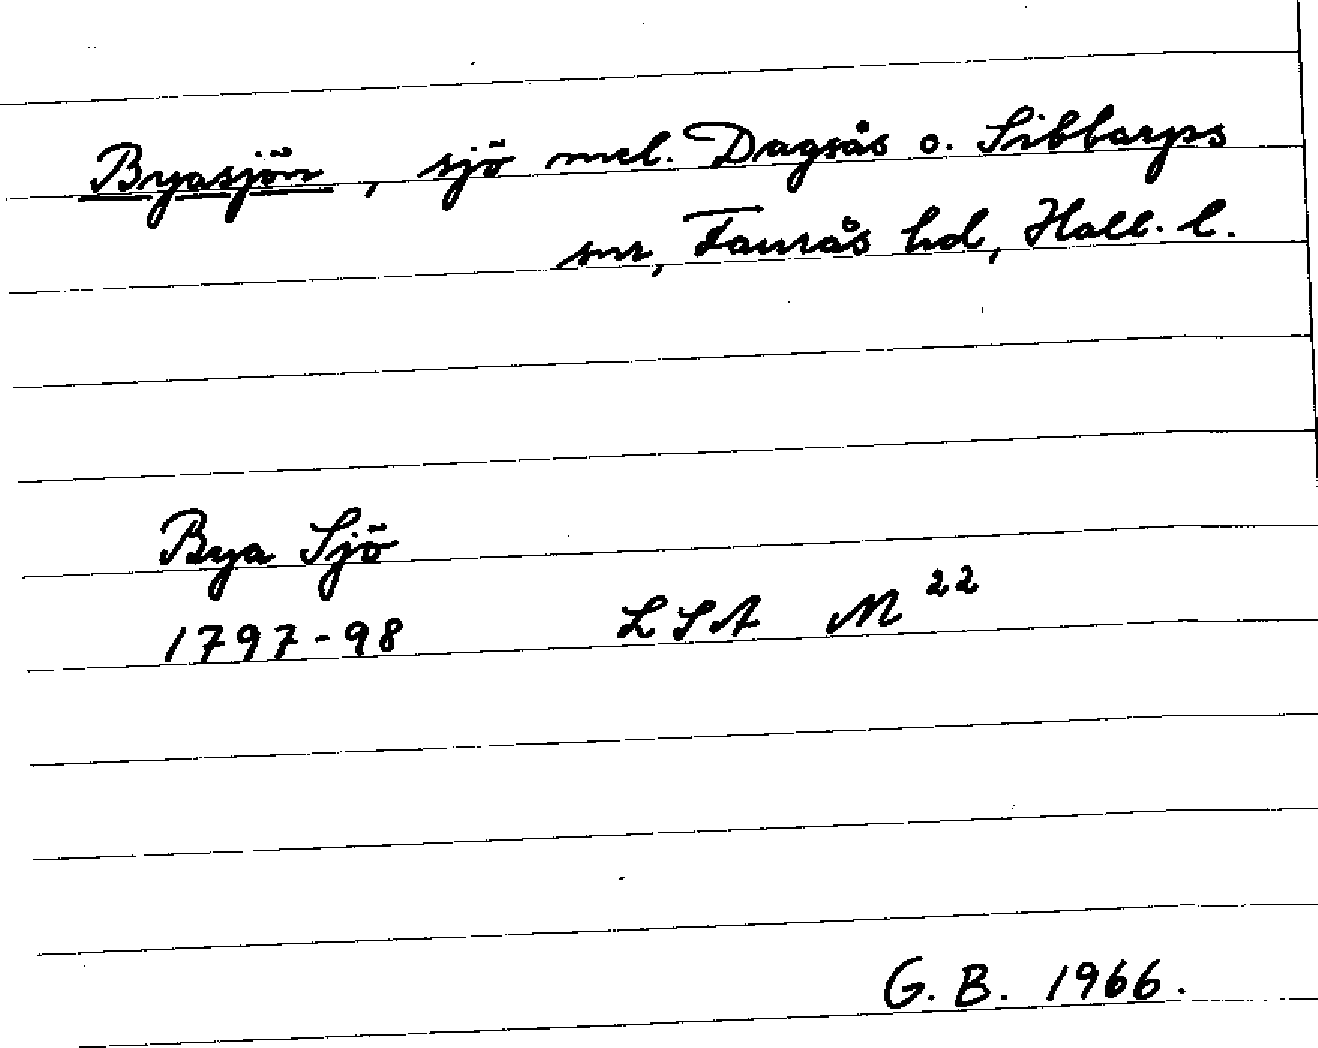 Byasjön, sjö mel. Dagsås o. Sibbarps
snr, Faurås hd, Hall. l.
Bya Sjö
1797-98 LSA M 22
G. B. 1966.